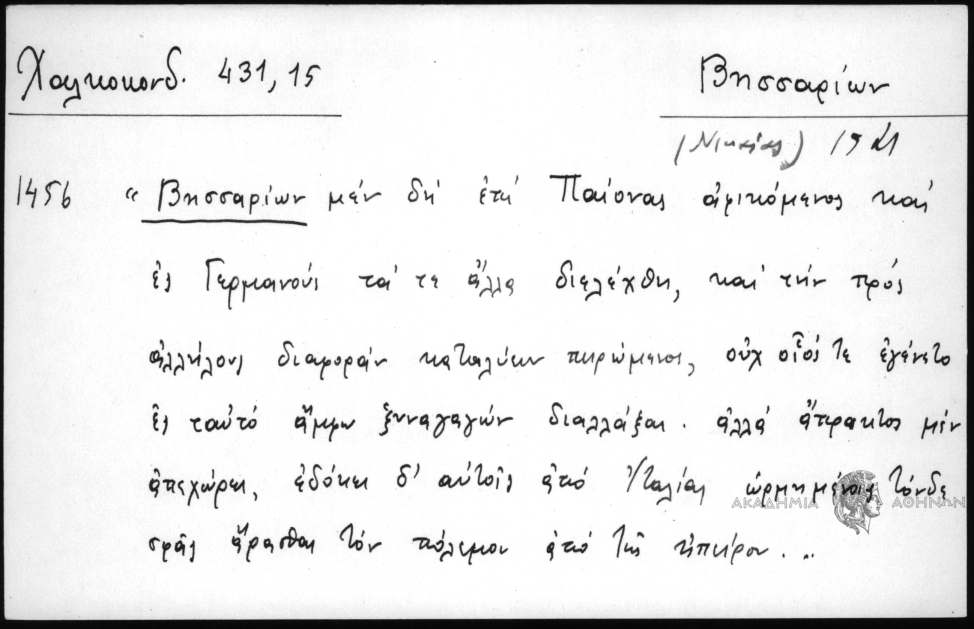 Χαλκοκονδ. 431,15
Βησσαρίων
(Νικαίας)
1456 " Βησσαρίων μέν δή ἐπί Παίονας ἀφικόμενος καί
ἐς Γερμανούς τά τε ἄλλα διελέχθη, καί τήν πρός
ἀλλήλους διαφοράν καταλύειν πειρώμενος, οὐχ οἷός τε ἐγένετο
ἐς ταὐτό ἄμφω ξυναγαγών διαλλάξαι. ἀλλά ἄπρακτος μέν
ἀπεχώρει, ἐδόκει δ' αὐτοῖς ἀπό Ἰταλίας ὡρμημένοις τόνδε
σφᾶς ἄρασθαι τόν πόλεμον ἀπό τῆς ἠπείρου...
ΑΚΑΔΗΜΙΑ ΑΘΗΝΩΝ